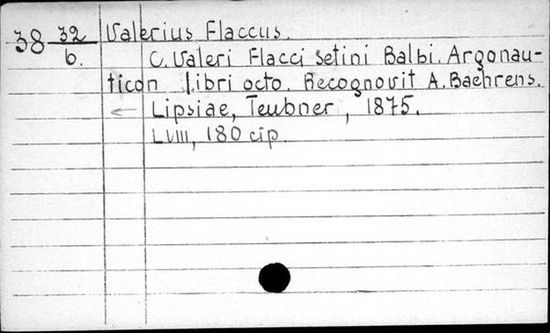 38 32 Valerius Flaccus.
6. C. Valeri Flacci Setini Balbi. Argonau-
ticon libri octo. Recognovit A. Baehrens.
← Lipsiae, Teubner, 1875.
LVIII, 180 cip.